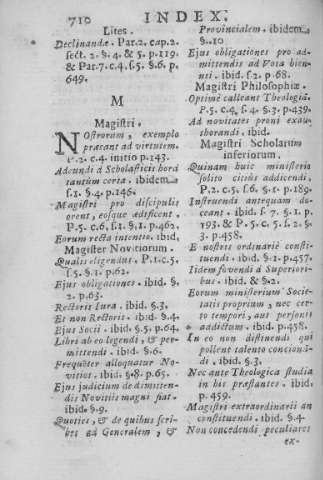 710 INDEX.
Lites.
Declinandæ. Par.2. cap.2.
sect. 2. §. 4. & 5. p.119.
& Par.7. c.4. s.5. §.6. p.
649.
M
Magistri.
Nostrorum, exemplo
præeant ad virtutem.
P.2. c.4. initio p.143.
Adeundi à Scholasticis hora
tantùm certa. ibidem
s.1. §.4. p.146.
Magistri pro discipulis
orent, eosque ædificent,
P.5. c.6. s.1. §.1. p.462.
Eorum recta intentio. ibid,
Magister Novitiorum.
Qualis eligendus. P.1.c.5.
s.5. §.1. p.62.
Ejus obligationes. ibid. §.
2. p.63.
Rectoris Iura. ibid. §.3.
Et non Rectoris. ibid. §.4.
Ejus Socii. ibid. §.5. p.64.
Libri ab eo legendi, & per-
mittendi. ibid. §.6.
Frequẽter alloquatur No-
vitios. ibid. §.8. p.65.
Ejus judicium de dimitten-
dis Novitiis magni fiat.
ibid. §.9.
Quoties, & de quibus scri-
bet ad Generalem, &
Provincialem. ibidem
§.10
Ejus obligationes pro ad-
mittendis ad Vota bien-
nii. ibid. s.2. p.68.
Magistri Philosophiæ.
Optimè calleant Theologiã.
P.5. c.4. s.4. §.3. p.439.
Ad novitates proni exau-
thorandi. ibid.
Magistri Scholarum
inferiorum.
Quinam huic ministerio
solito citiùs addicendi,
P.2. c.5. s.6. §.1. p.189.
Instruendi antequam do-
ceant. ibid. s.7. §.1. p.
193. & P.5. c.5. s.2. §.
3. p.458.
E nostres ordinariè consti-
tuendi. ibid. §.1. p.457.
Iidem fovendi à Superiori-
bus. ibid. & §.2.
Eorum ministerium Socie-
tatis proprium, nec cer-
to tempori, aut personis
addictum. ibid. p.458.
In eo non distinendi qui
pollent talento concionã-
di. ibid. §.3.
Nec ante Theologica studia
in his præstantes. ibid.
p.459.
Magistri extraordinarii an
constituendi. ibid. §.4.
Non concedendi peculiares
ex-